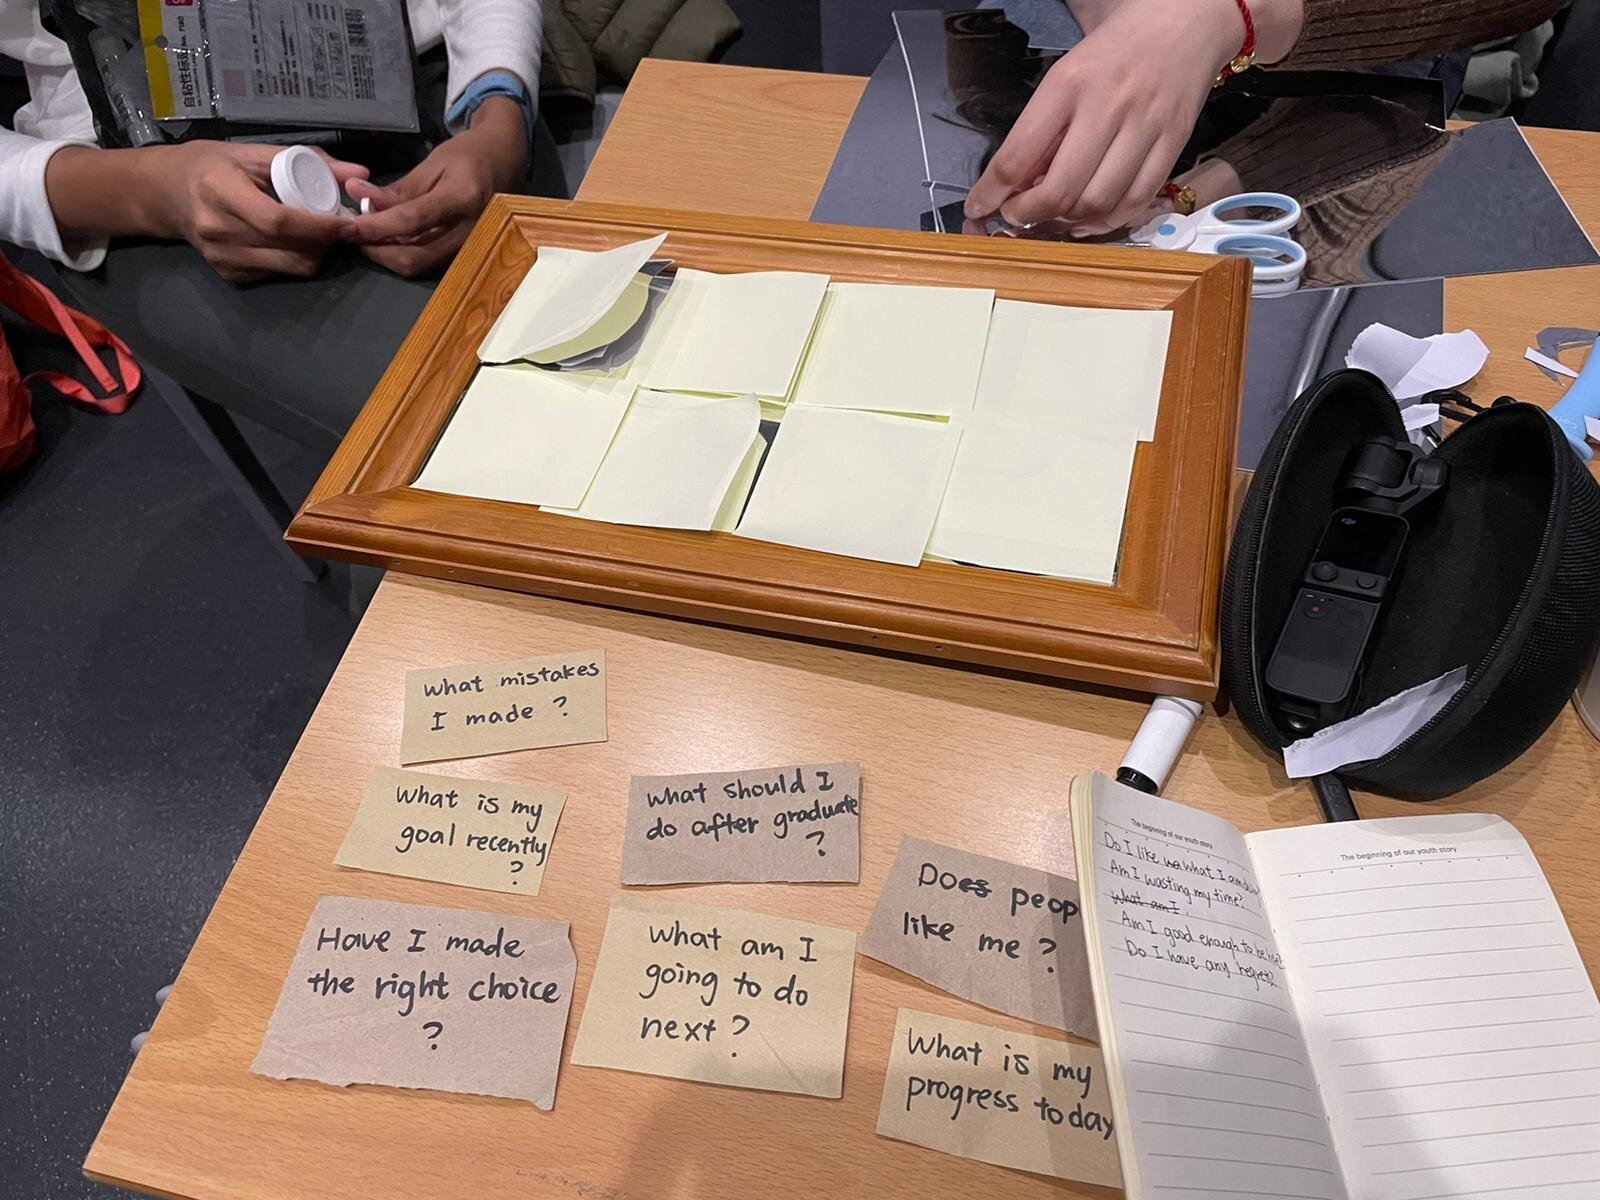 自粘性标
No. 7180
What mistakes
I made ?
What is my
goal recently
?
What should I
do after graduate
?
Does peop
like me ?
Have I made
the right choice
?
What am I
going to do
next ?
What is my
progress today
The beginning of our youth story
Do I like what I am
Am I wasting my time?
What am I
Am I good enough to be
Do I have any regret?
The beginning of our youth story
dji